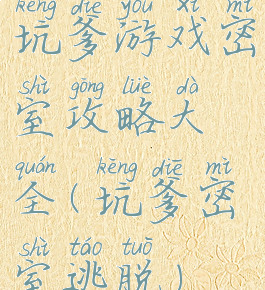 kēng diē yóu xì mì
坑爹游戏密
shì gōng lüè dà
室攻略大
quán kēng diē mì
全(坑爹密
shì táo tuō
室逃脱)